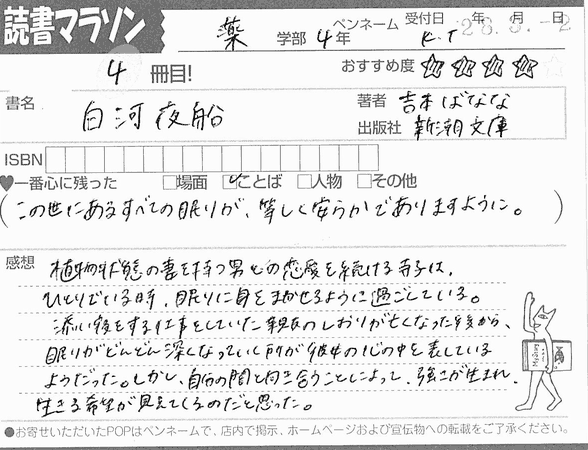 読書マラソン
薬 学部 4年 ペンネーム K.T 受付日 年 月 日
4 冊目! おすすめ度 ☆☆☆☆☆
書名 白河夜船 著者 吉本ばなな
出版社 新潮文庫
ISBN
♥一番心に残った □場面 ☑ことば □人物 □その他
(この世にあるすべての眠りが、等しく安らかでありますように。)
感想 植物状態の妻を持つ男との恋愛を続ける寺子は、
ひとりでいる時、眠りに身をまかせるように過ごしている。
添い寝をする仕事をしていた親友のしおりが亡くなった後から、
眠りがどんどん深くなっていく所が彼女の心の中を表している
ようだった。しかし、自分の闇と向き合うことによって、強さが生まれ、
生きる希望が見えてくるのだと思った。
●お寄せいただいたPOPはペンネームで、店内で掲示、ホームページおよび宣伝物への転載をご了承ください。